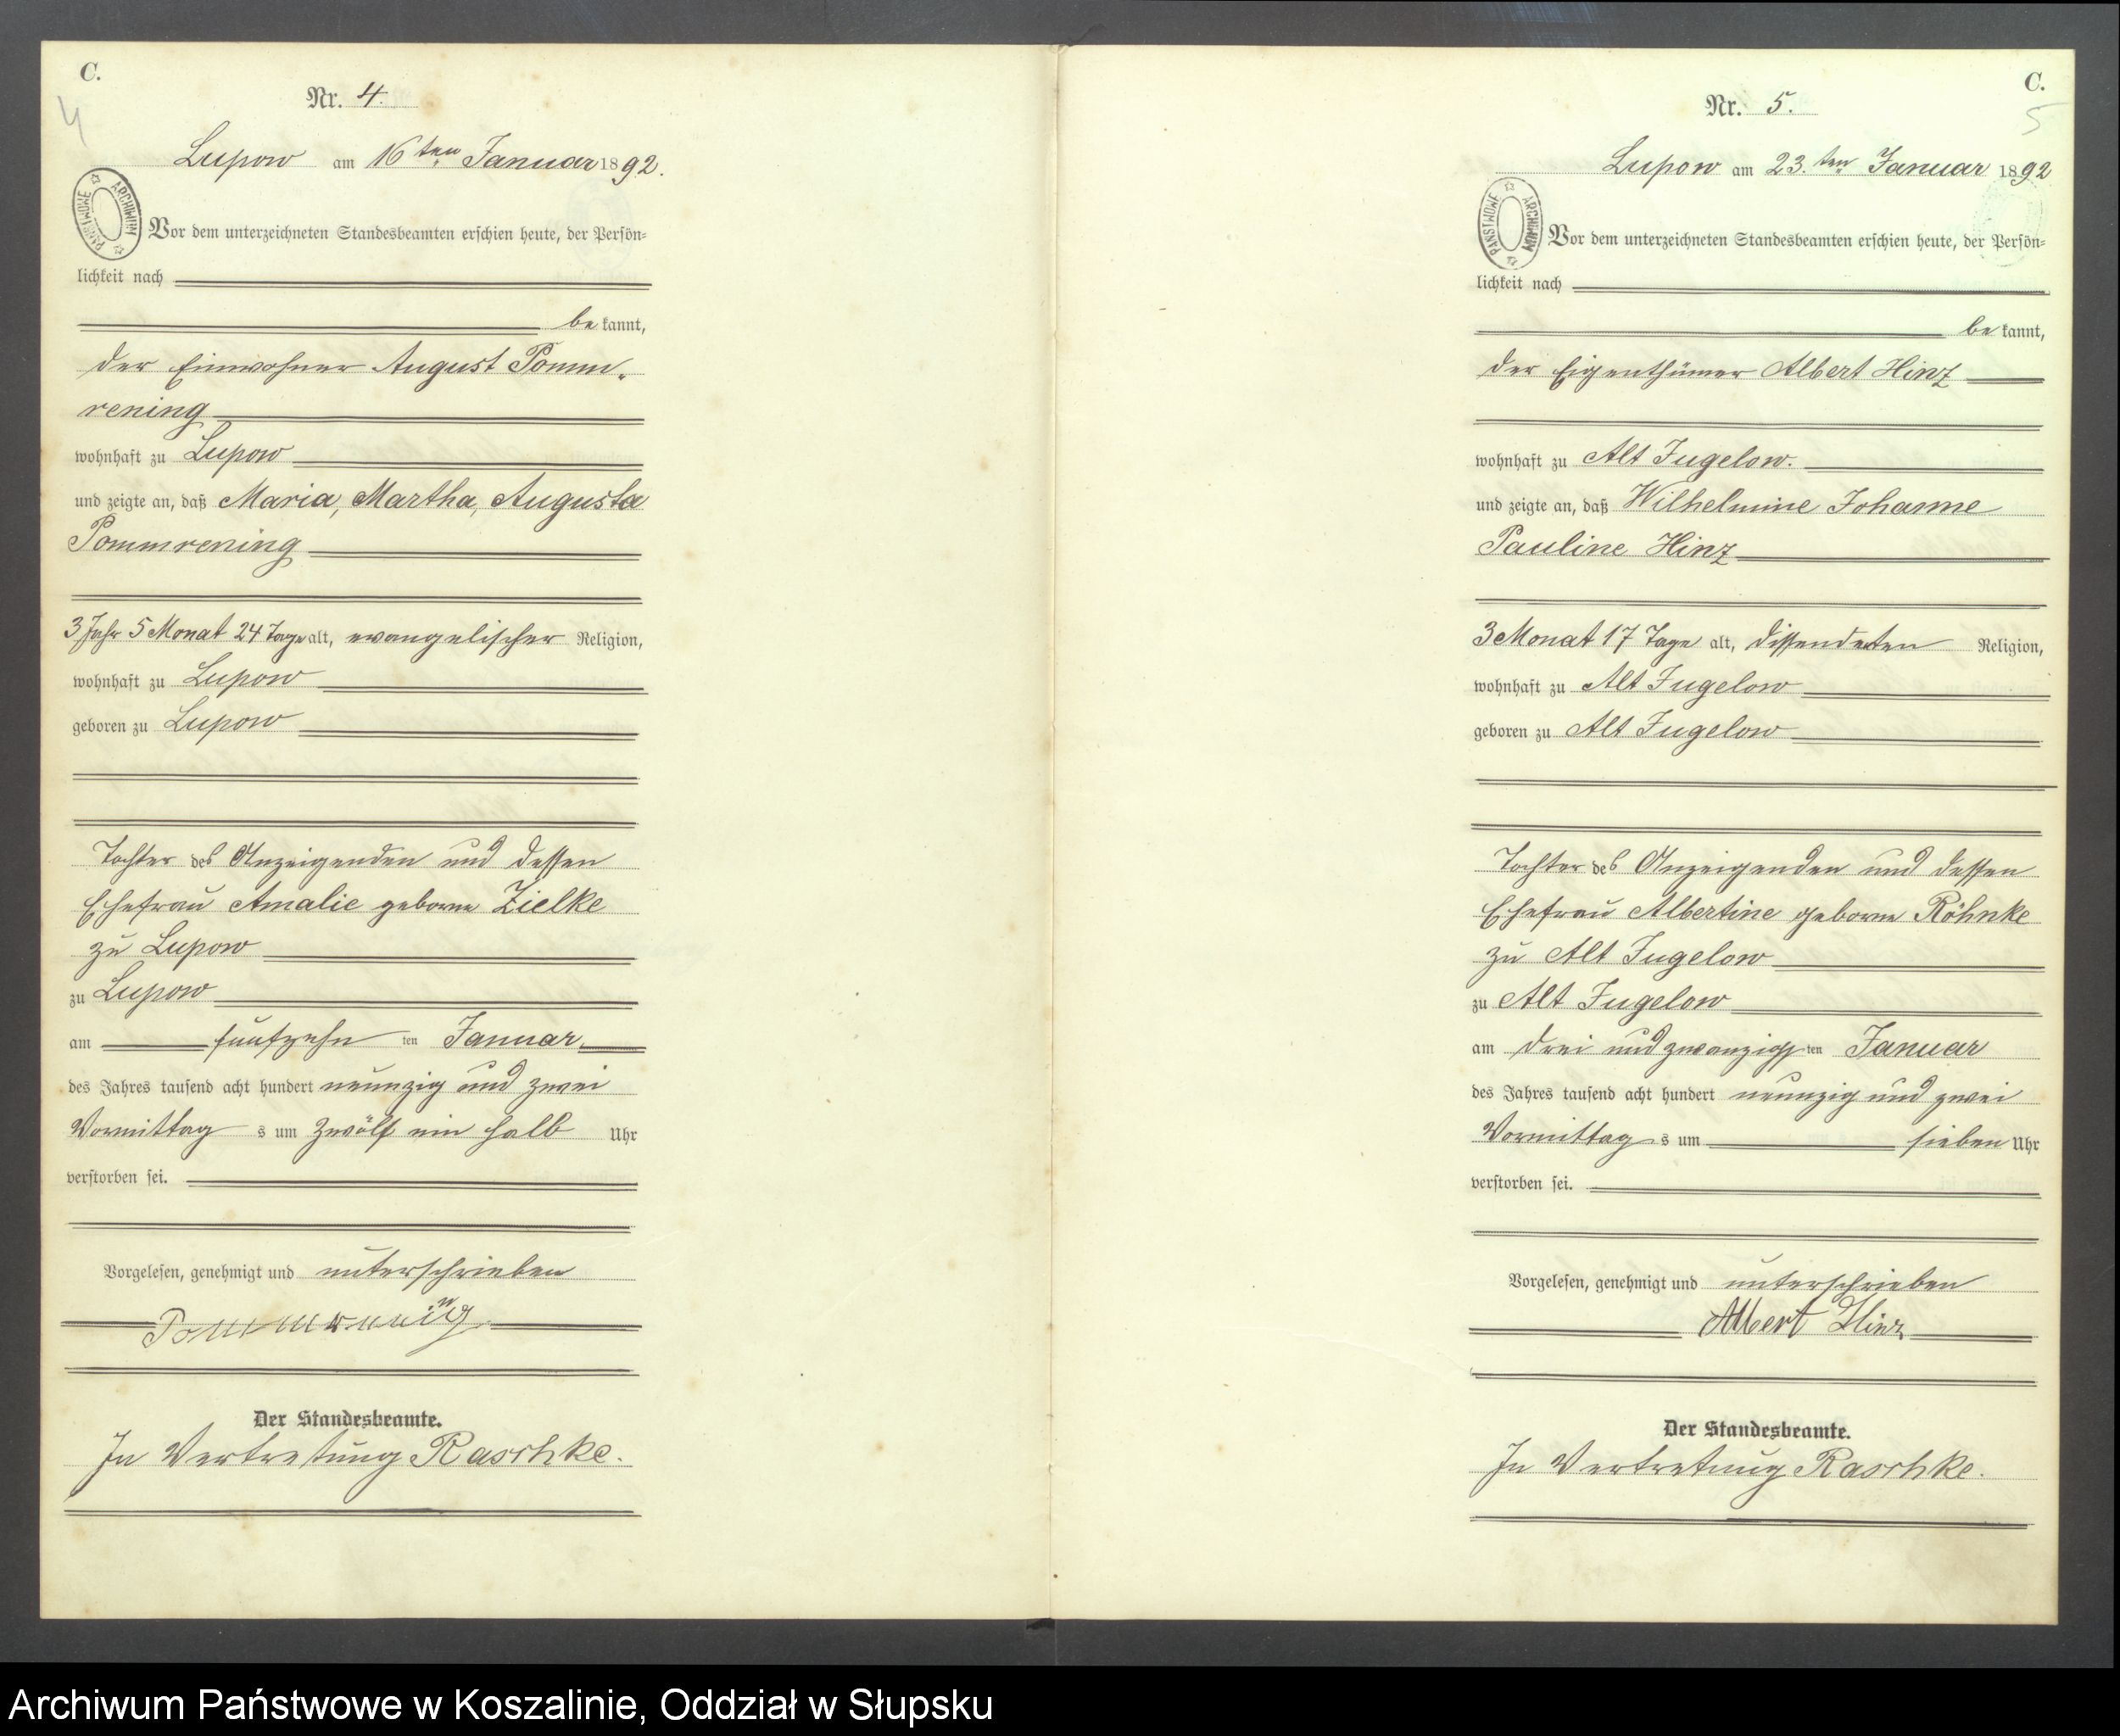 C.
4
Nr. 4.
Lupow am 16ten Januar 1892.
ARCHIWUM PAŃSTWOWE
Vor dem unterzeichneten Standesbeamten erschien heute, der Persön-
lichkeit nach
bekannt,
der Einwohner August Pomm-
rening
wohnhaft zu Lupow
und zeigte an, daß Maria, Martha, Augusta
Pommrening
3 Jahr 5 Monat 24 Tage alt, evangelischer Religion,
wohnhaft zu Lupow
geboren zu Lupow
Tochter des Anzeigenden und dessen
Ehefrau Amalie geborne Zielke
zu Lupow
zu Lupow
am funfzehn ten Januar
des Jahres tausend acht hundert neunzig und zwei
Vormittag s um zwölf ein halb Uhr
verstorben sei.
Vorgelesen, genehmigt und unterschrieben
Pommrening
Der Standesbeamte.
In Vertretung Raschke.
C.
5
Nr. 5.
Lupow am 23.ten Januar 1892
ARCHIWUM PAŃSTWOWE
Vor dem unterzeichneten Standesbeamten erschien heute, der Persön-
lichkeit nach
bekannt,
der Eigenthümer Albert Hinz
wohnhaft zu Alt Jugelow.
und zeigte an, daß Wilhelmine Johanne
Pauline Hinz
3 Monat 17 Tage alt, dissendenten Religion,
wohnhaft zu Alt Jugelow
geboren zu Alt Jugelow
Tochter des Anzeigenden und dessen
Ehefrau Albertine geborne Röhnke
zu Alt Jugelow
zu Alt Jugelow
am drei und zwanzigsten Januar
des Jahres tausend acht hundert neunzig und zwei
Vormittag s um sieben Uhr
verstorben sei.
Vorgelesen, genehmigt und unterschrieben
Albert Hinz
Der Standesbeamte.
In Vertretung Raschke.
Archiwum Państwowe w Koszalinie, Oddział w Słupsku